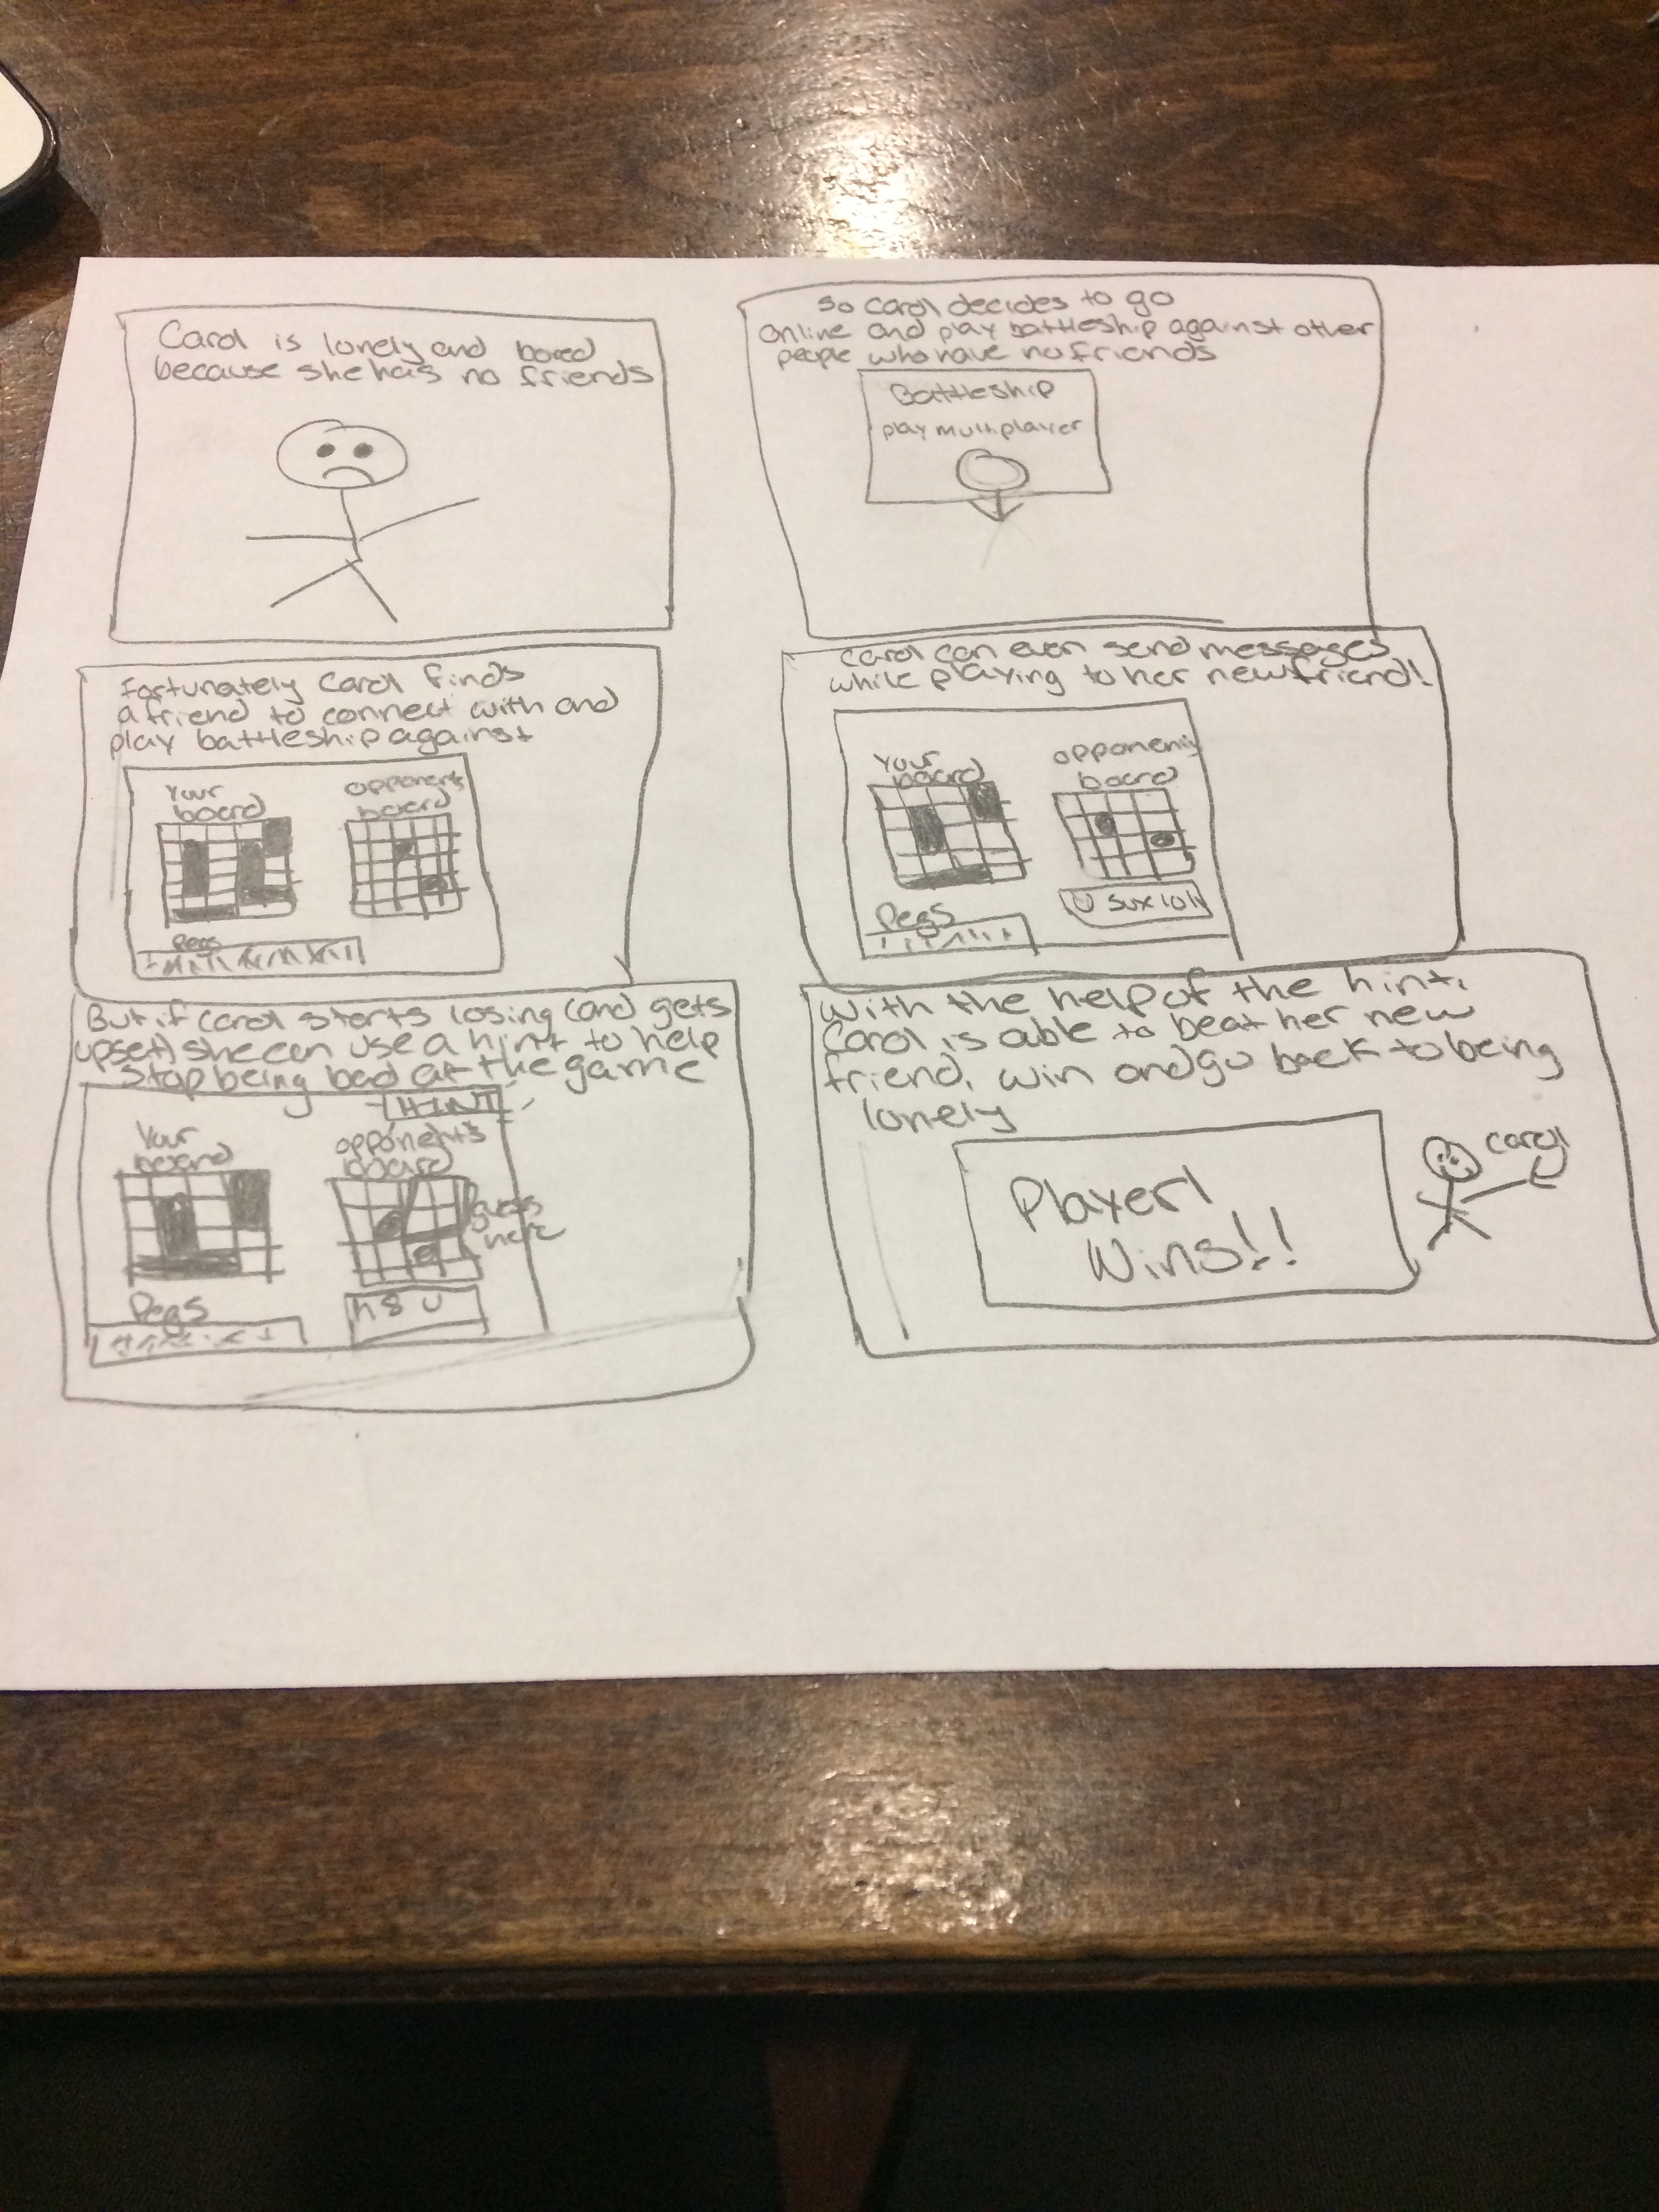 Carol is lonely and bored
because she has no friends
So Carol decides to go
online and play battleship against other
people who have no friends
Battleship
play multiplayer
Fortunately Carol finds
a friend to connect with and
play battleship against
Your
board
opponents
board
Pegs
Carol can even send messages
while playing to her new friend!
Your
board
opponents
board
U sux lol
Pegs
But if Carol starts losing (and gets
upset) she can use a hint to help
stop being bad at the game
HINT
Your
board
opponents
board
guess
here
Pegs
h8 U
With the help of the hint,
Carol is able to beat her new
friend, win and go back to being
lonely
Player 1
Wins!!
Carol